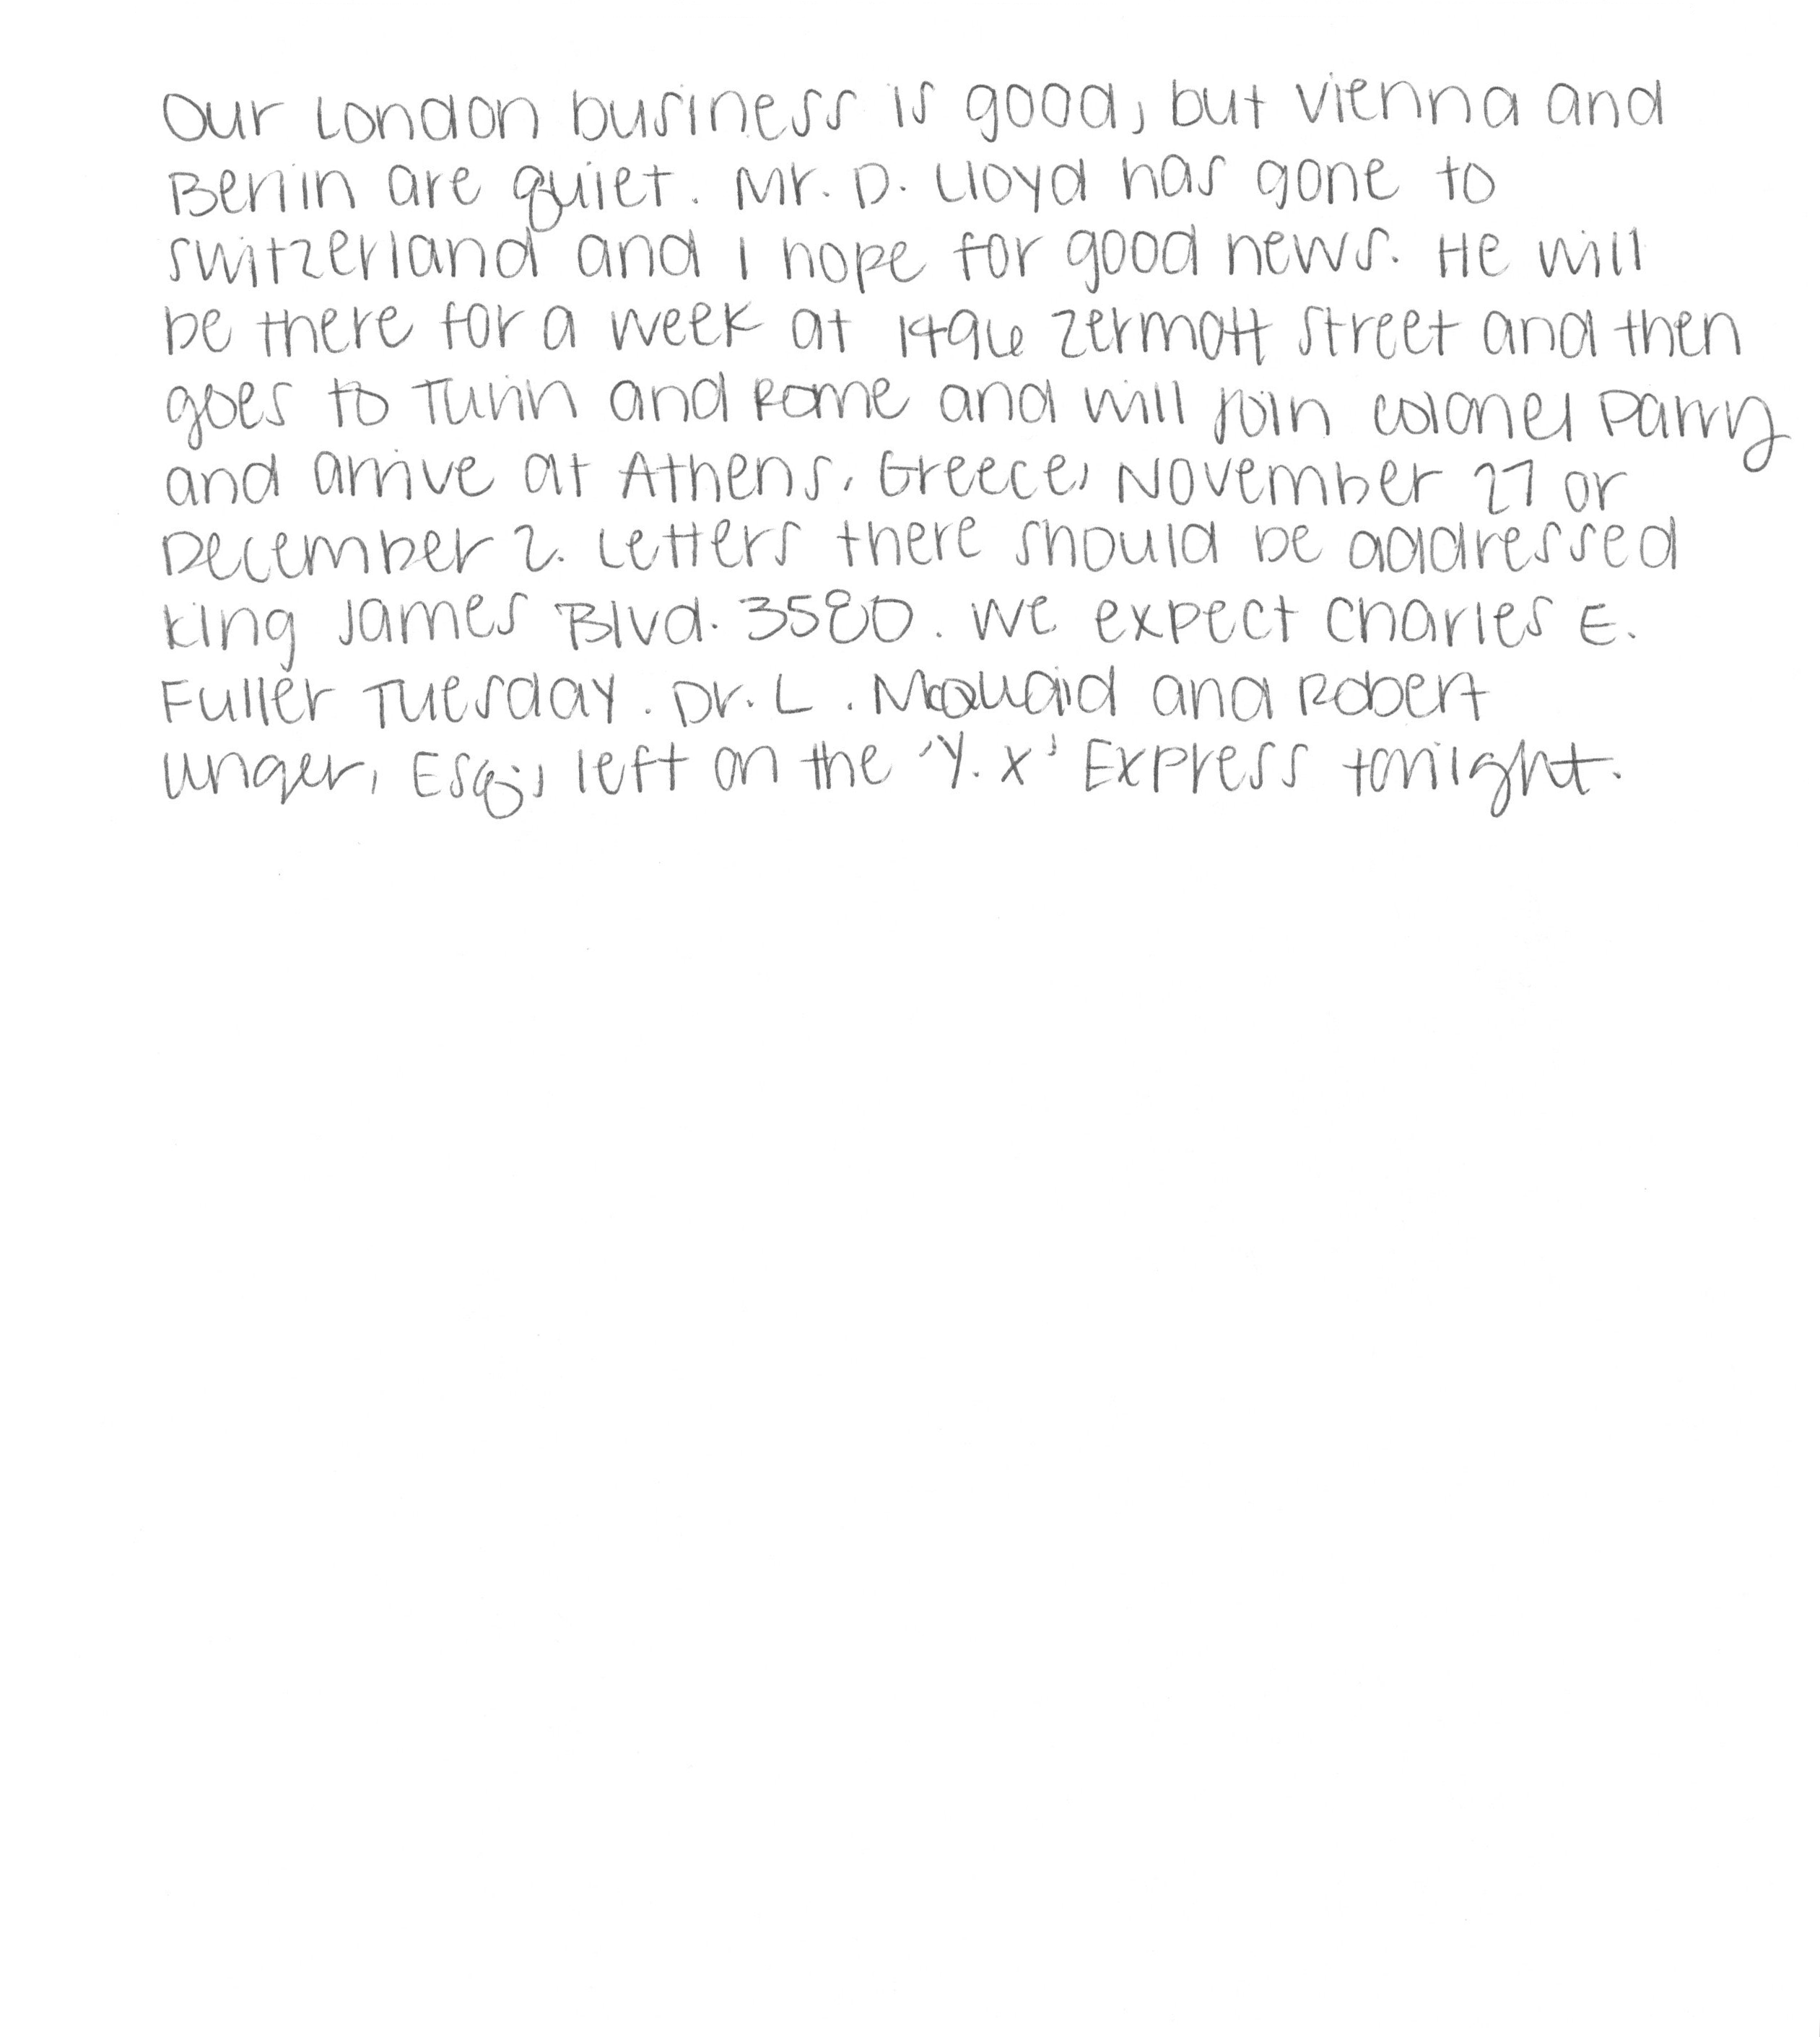 Our London business is good, but Vienna and
Berlin are quiet. Mr. D. Lloyd has gone to
Switzerland and I hope for good news. He will
be there for a week at 1496 Zermott Street and then
goes to Turin and Rome and will join Colonel Parry
and arrive at Athens, Greece, November 27 or
December 2. Letters there should be addressed
King James Blvd. 3580. We expect Charles E.
Fuller Tuesday. Dr. L. McQuaid and Robert
Unger, Esq., left on the 'Y. X' Express tonight.